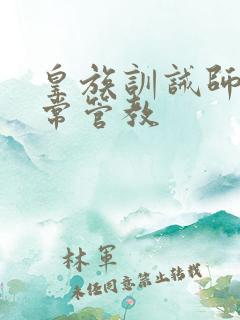 皇族訓誡師
常管教
林軍
未经同意禁止转载